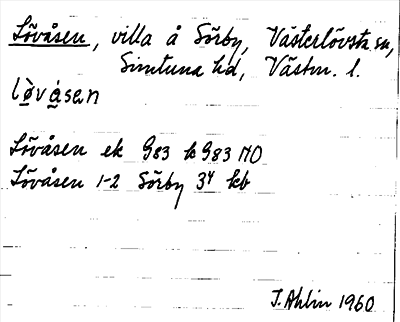 Lövåsen, villa å Sörby, Västerlövsta sn,
Simtuna hd, Västm. l.
lò̱vá̱sen
Lövåsen ek G83 k G83 NO
Lövåsen 1-2 Sörby 3⁴ kb
J. Ahlin 1960